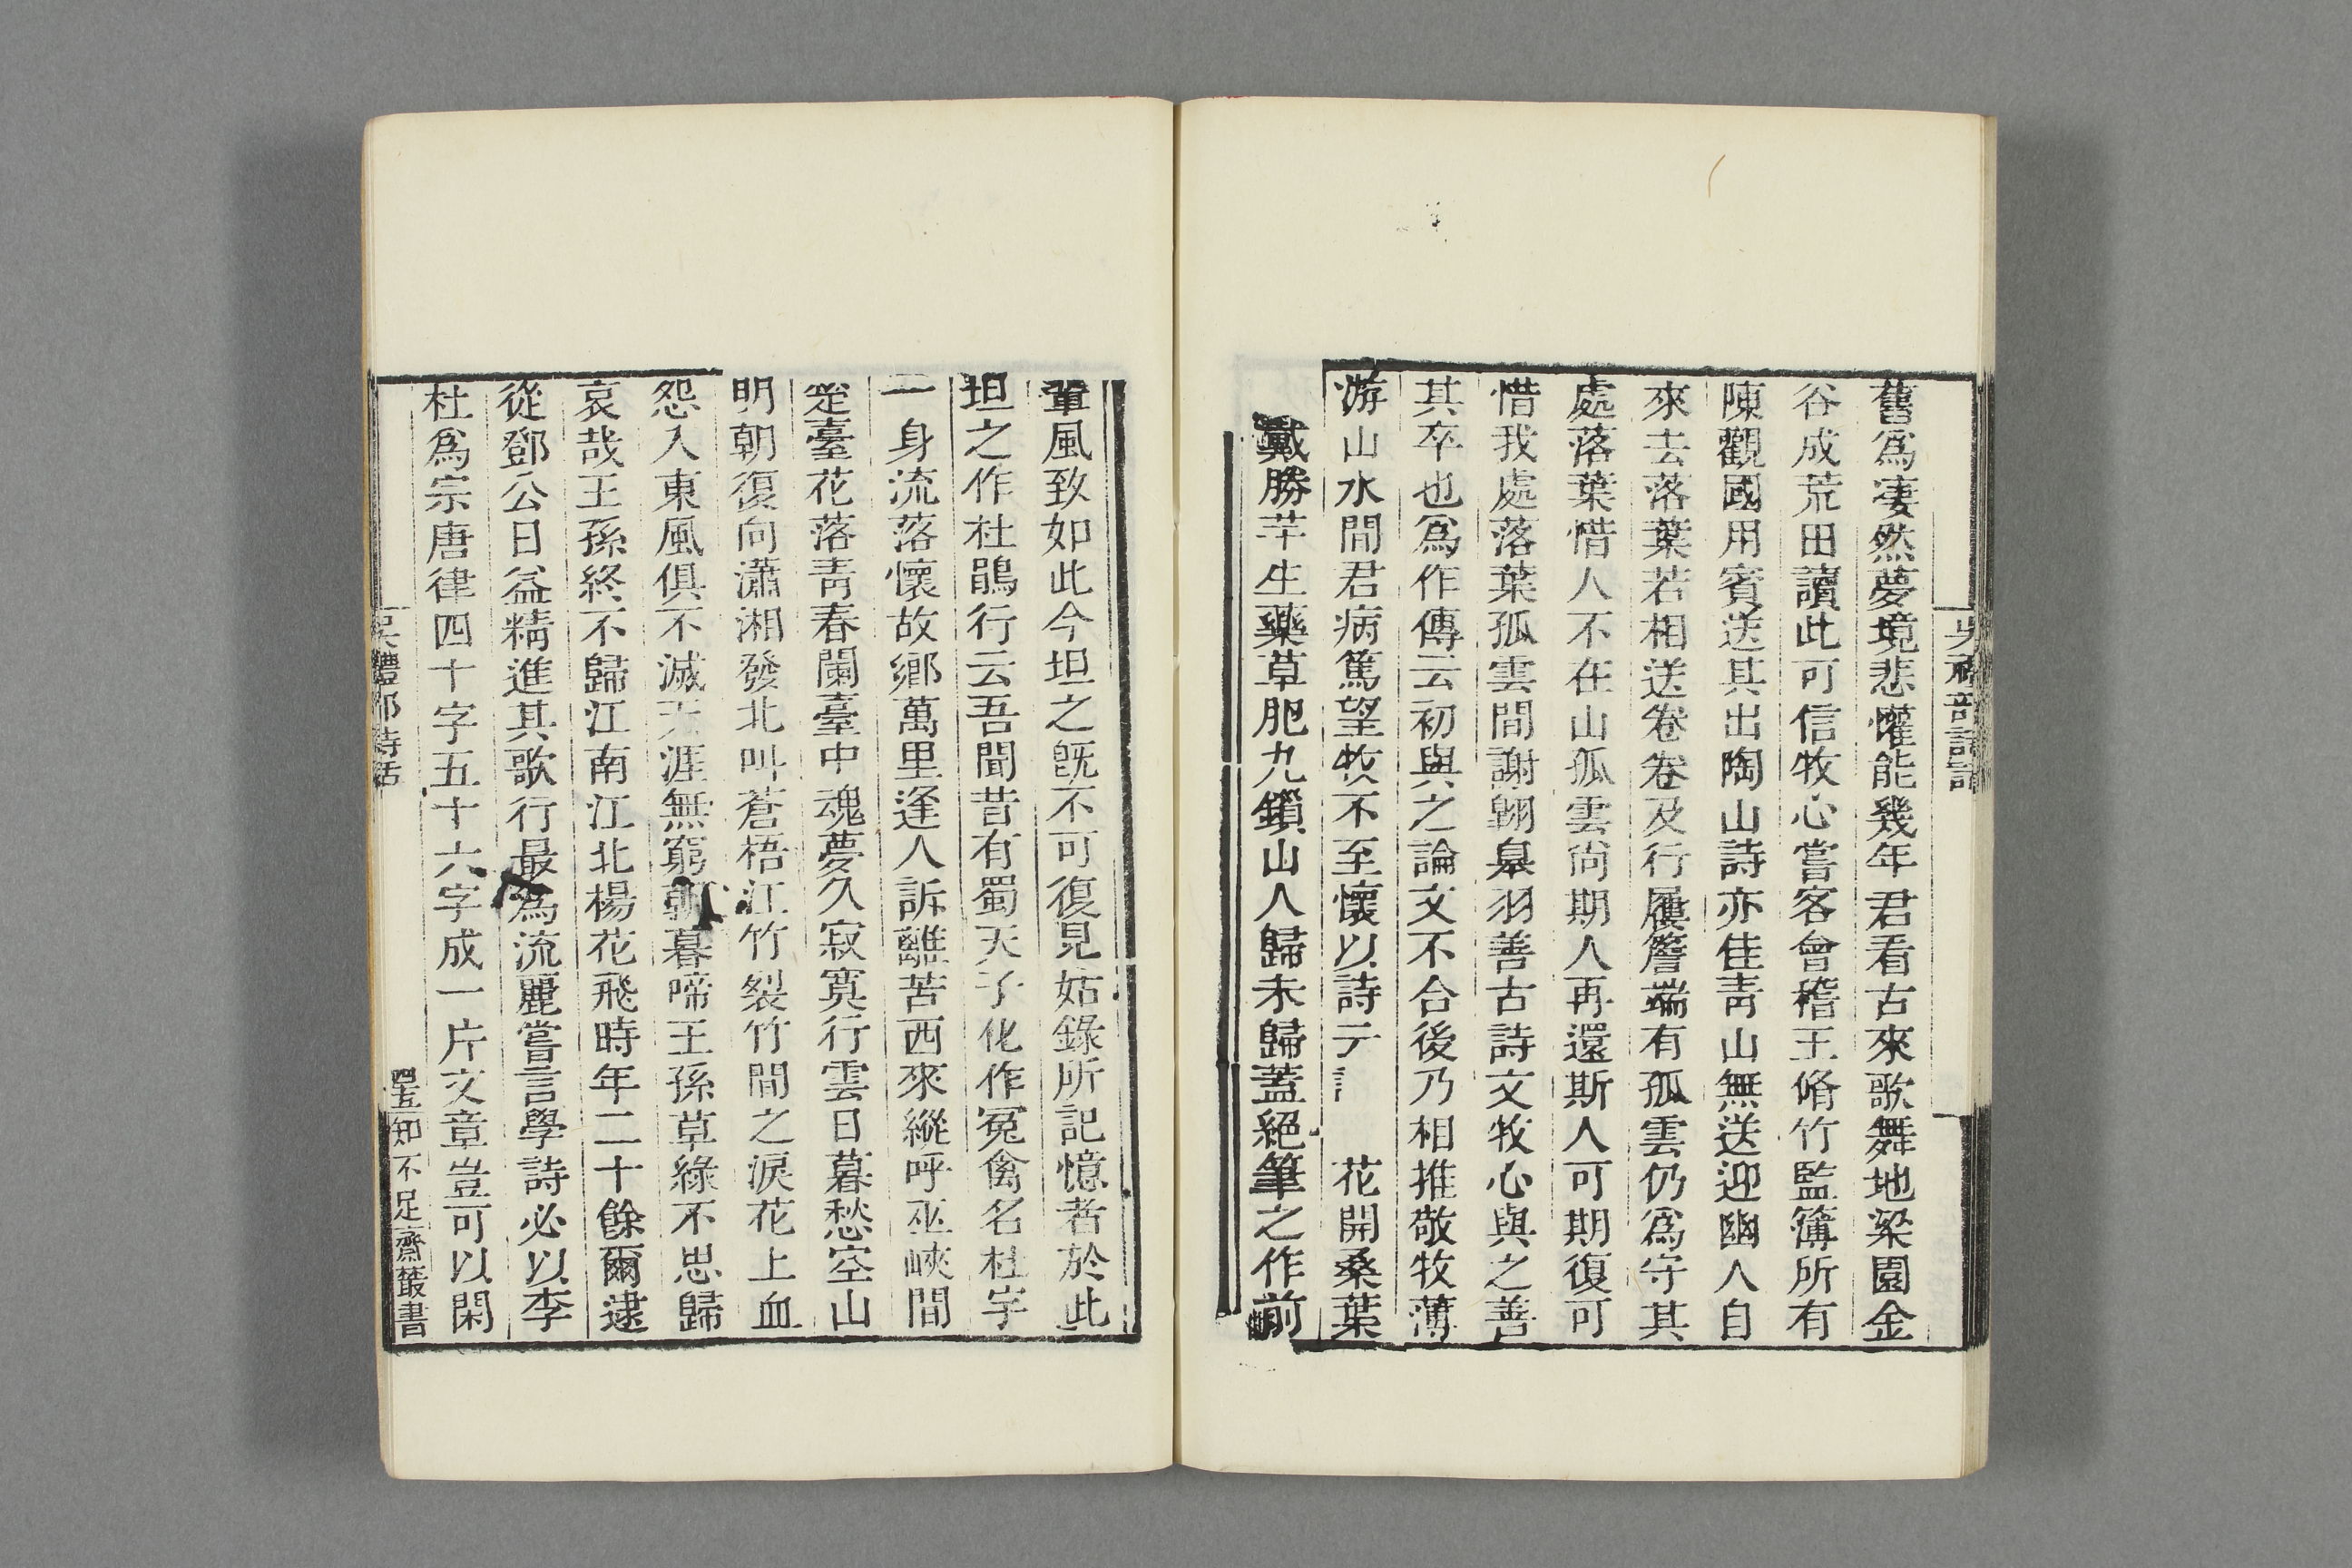 舊爲凄然夢境悲懽能幾年君看古來歌舞地梁園金
谷成荒田讀此可信牧心嘗客會稽王脩竹監簿所有
陳觀國用賓送其出陶山詩亦佳靑山無送迎幽人自
來去落葉若相送卷卷及行屨簷端有孤雲仍爲守其
處落葉惜人不在山孤雲尙期人再還斯人可期復可
惜我處落葉孤雲間謝翺臯羽善古詩文牧心與之善
其卒也爲作傳云初與之論文不合後乃相推敬牧薄
游山水間君病篤望牧不至懷以詩云 花開桑葉
戴勝芋生藥草肥九鎖山人歸未歸蓋絕筆之作前
輩風致如此今坦之旣不可復見姑錄所記憶者於此
坦之作杜鵑行云吾聞昔有蜀天子化作冤禽名杜宇
一身流落懷故鄉萬里逢人訴離苦西來縱呼巫峽間
楚臺花落靑春闌臺中魂夢久寂寞行雲日暮愁空山
明朝復向瀟湘發北叫蒼梧江竹裂竹間之淚花上血
怨入東風俱不滅天涯無窮朝暮啼王孫草綠不思歸
哀哉王孫終不歸江南江北楊花飛時年二十餘爾逮
從鄧公日益精進其歌行最爲流麗嘗言學詩必以李
杜爲宗唐律四十字五十六字成一片文章豈可以閑
吳禮部詩話
知不足齋叢書